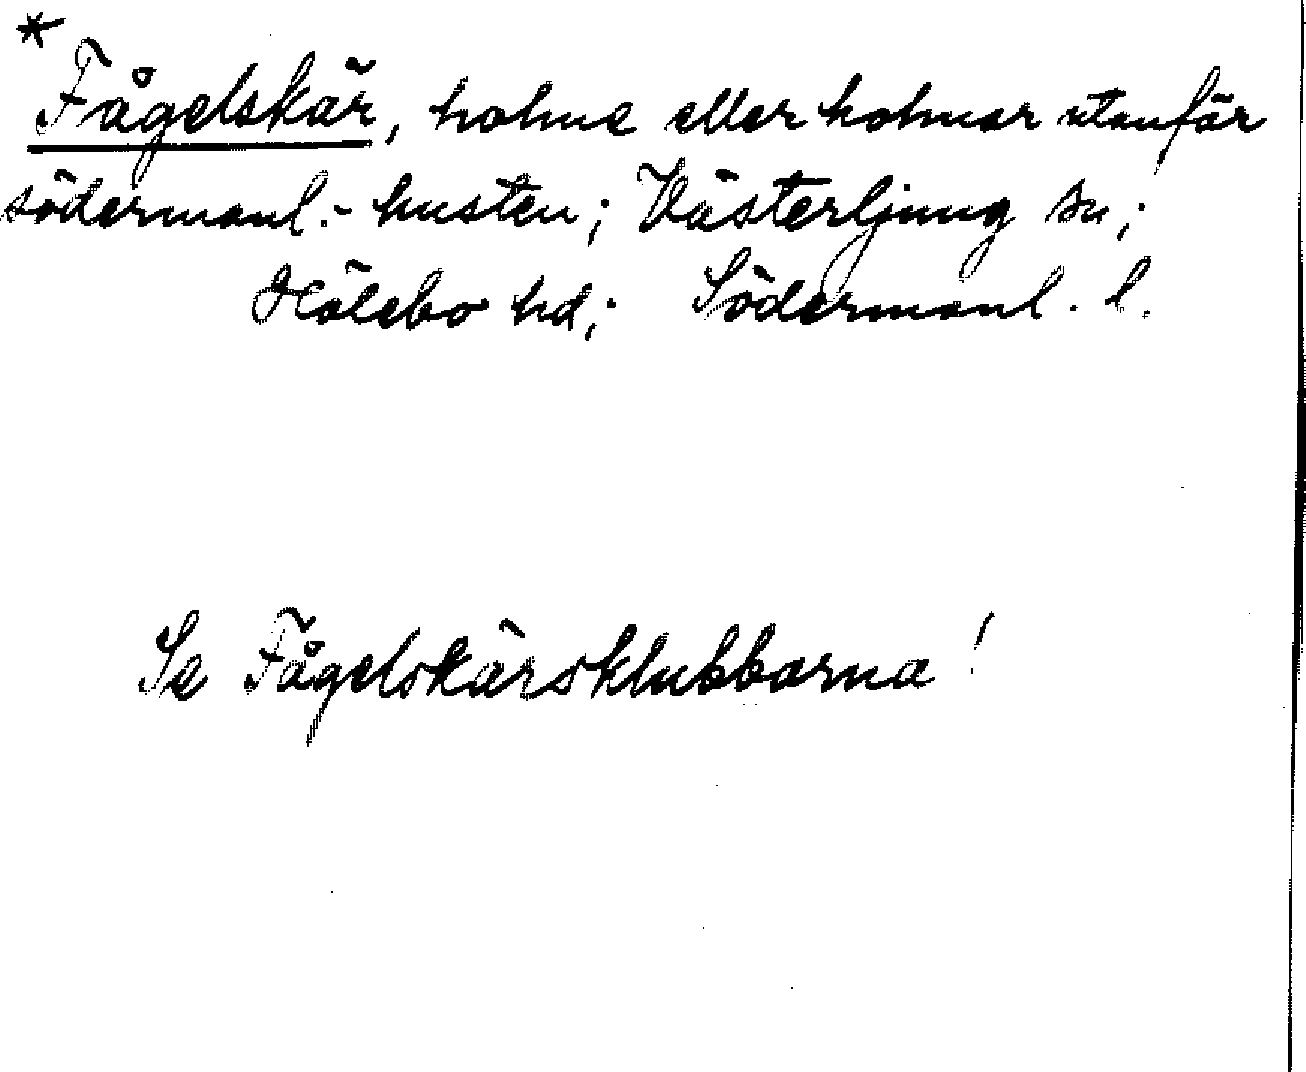 * Fågelskär, holme eller holmar utanför
södermanl.- kusten; Västerljung sn;
Hölebo hd; Södermanl. l.
Se Fågelskärsklubbarna!